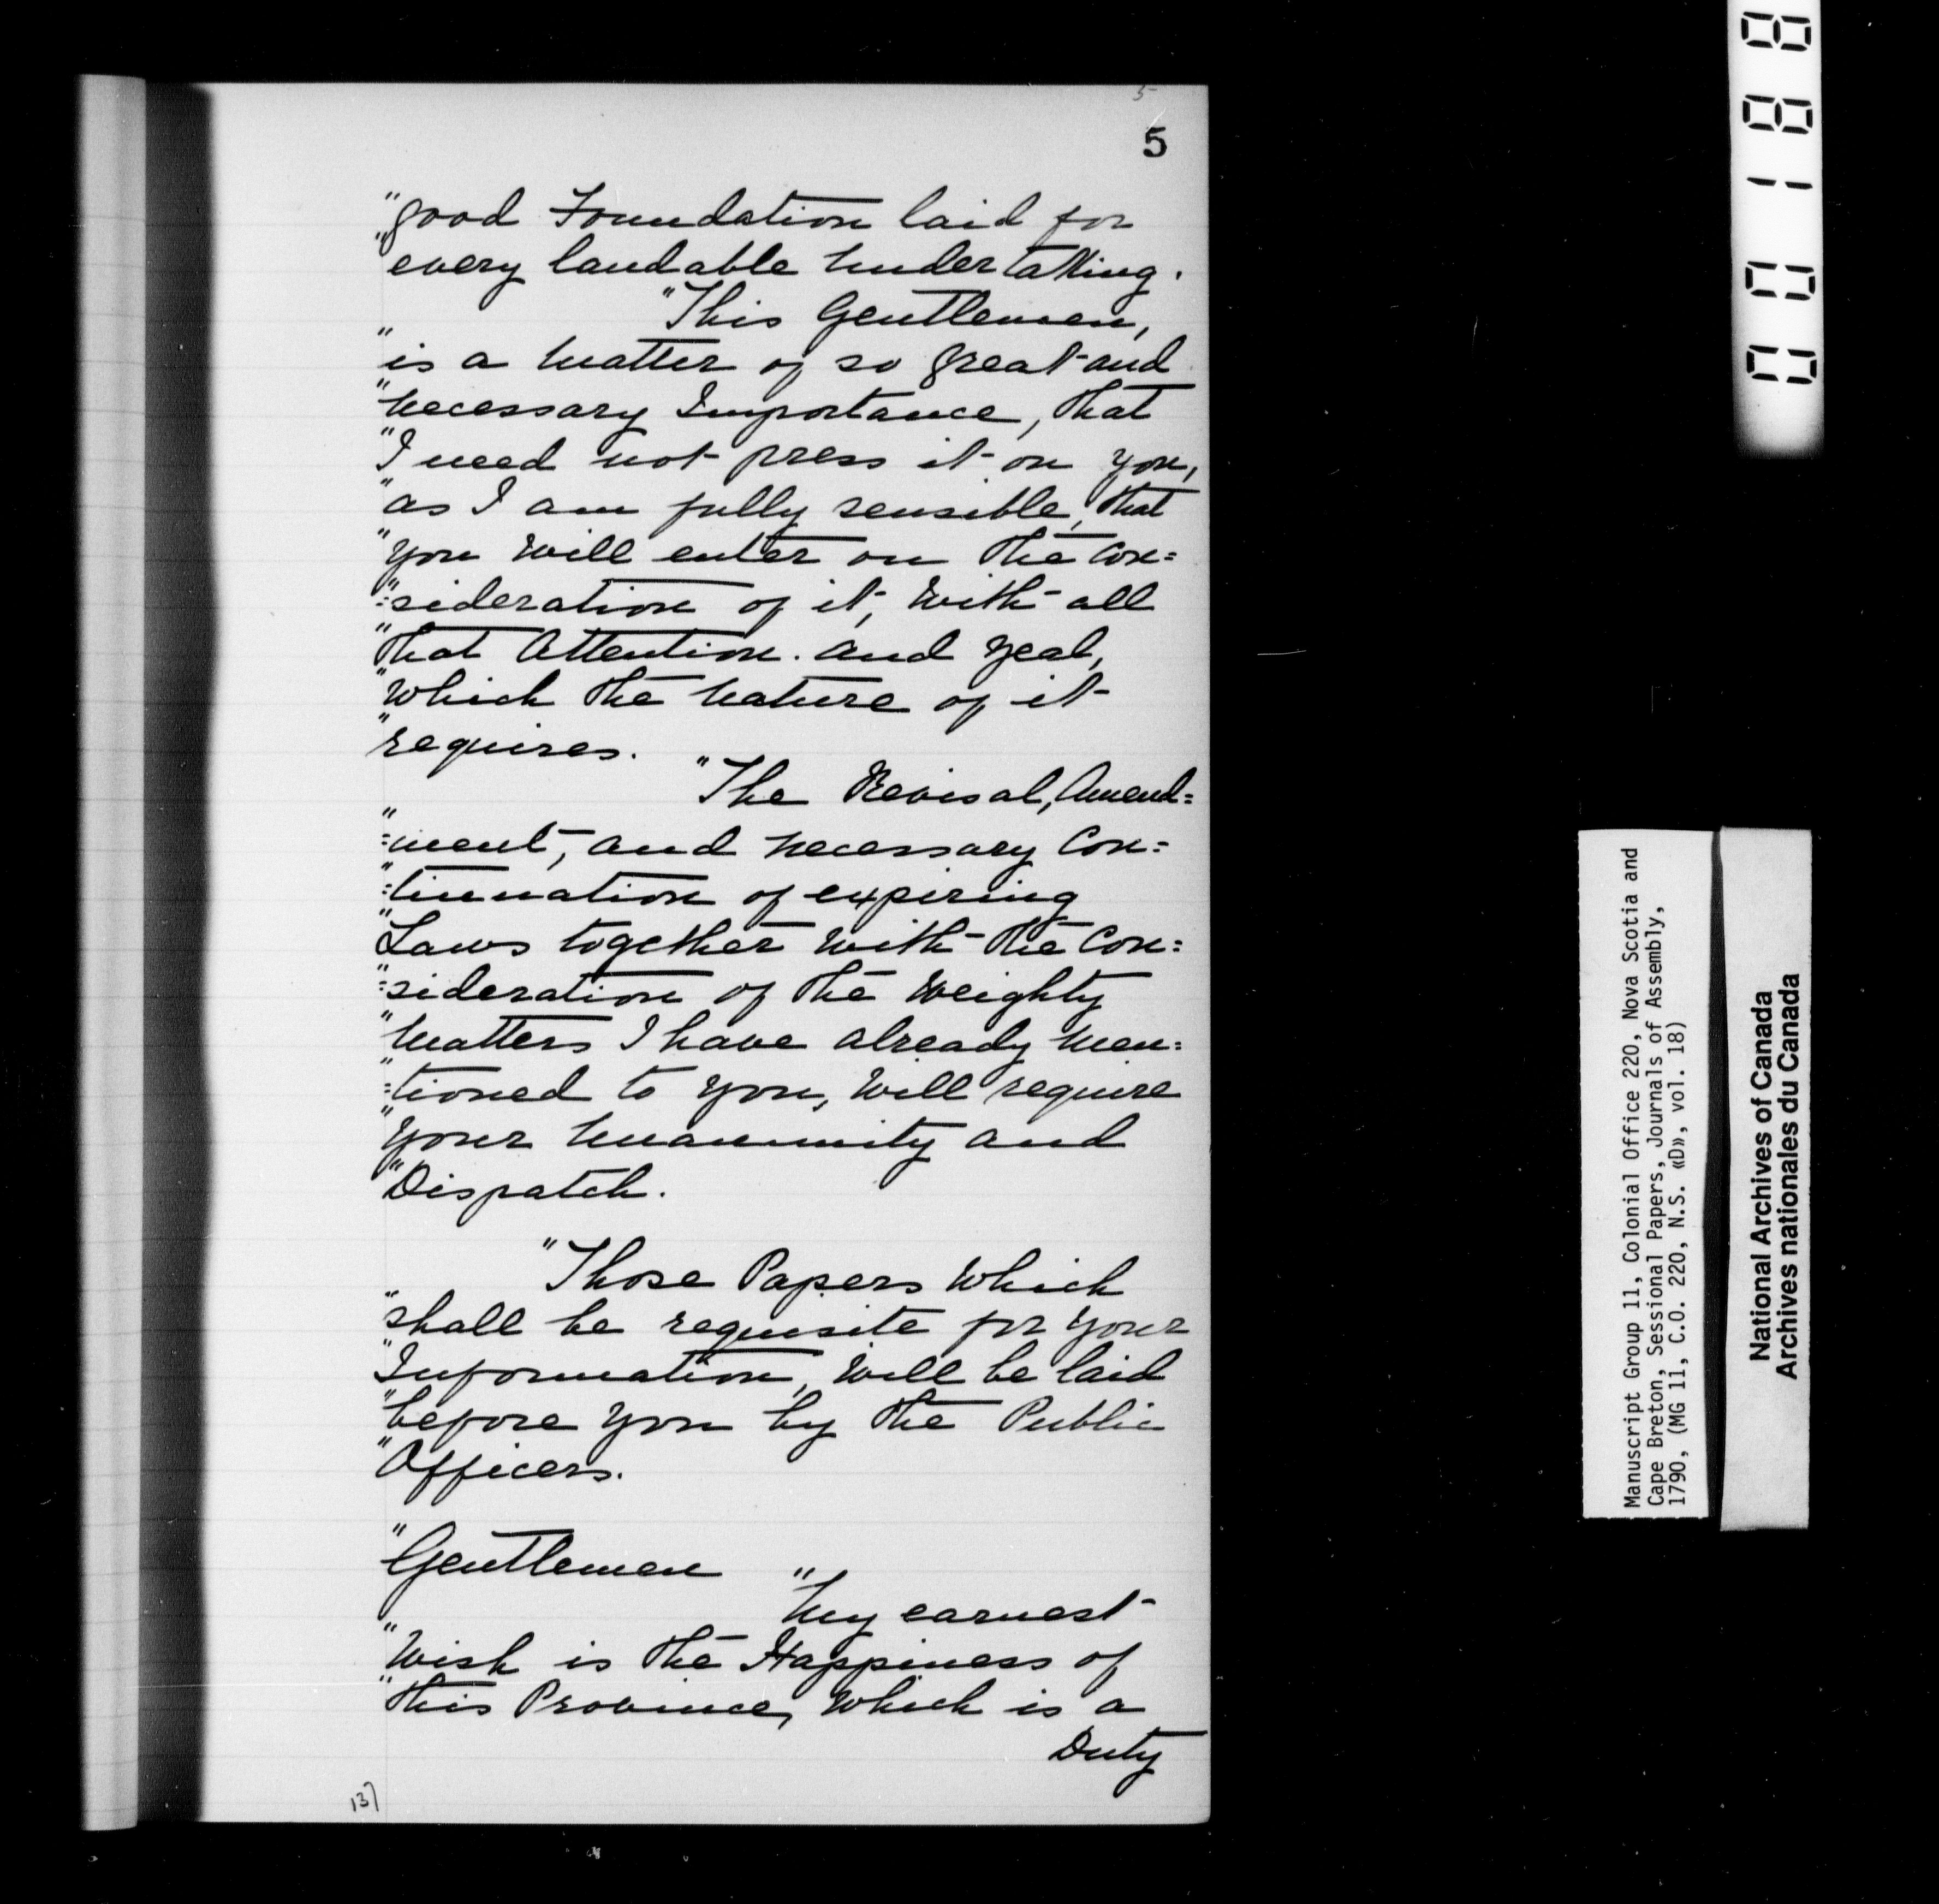 5
5
"good Foundation laid for
"every laudable undertaking.
"This Gentlemen,
"is a matter of so great and
"necessary Importance, that
"I need not press it on you,
"as I am fully sensible, that
"you will enter on the Con=
"=sideration of it, with all
"that Attention. and zeal,
"which the nature of it
"requires.
"The Revisal, Amend=
"=ment, and necessary Con=
"=tinuation of expiring
"Laws together with the Con=
"=sideration of the Weighty
"matters I have already men=
"=tioned to you, will require
"your unanimity and
"Dispatch.
"Those Papers which
"shall be requisite for your
"Information, will be laid
"before you by the Public
"Officers.
"Gentlemen
"My earnest
"Wish is the Happiness of
"this Province, which is a
Duty
137
00188
Manuscript Group 11, Colonial Office 220, Nova Scotia and
Cape Breton, Sessional Papers, Journals of Assembly,
1790, (MG 11, C.O. 220, N.S. «D», vol. 18)
National Archives of Canada
Archives nationales du Canada